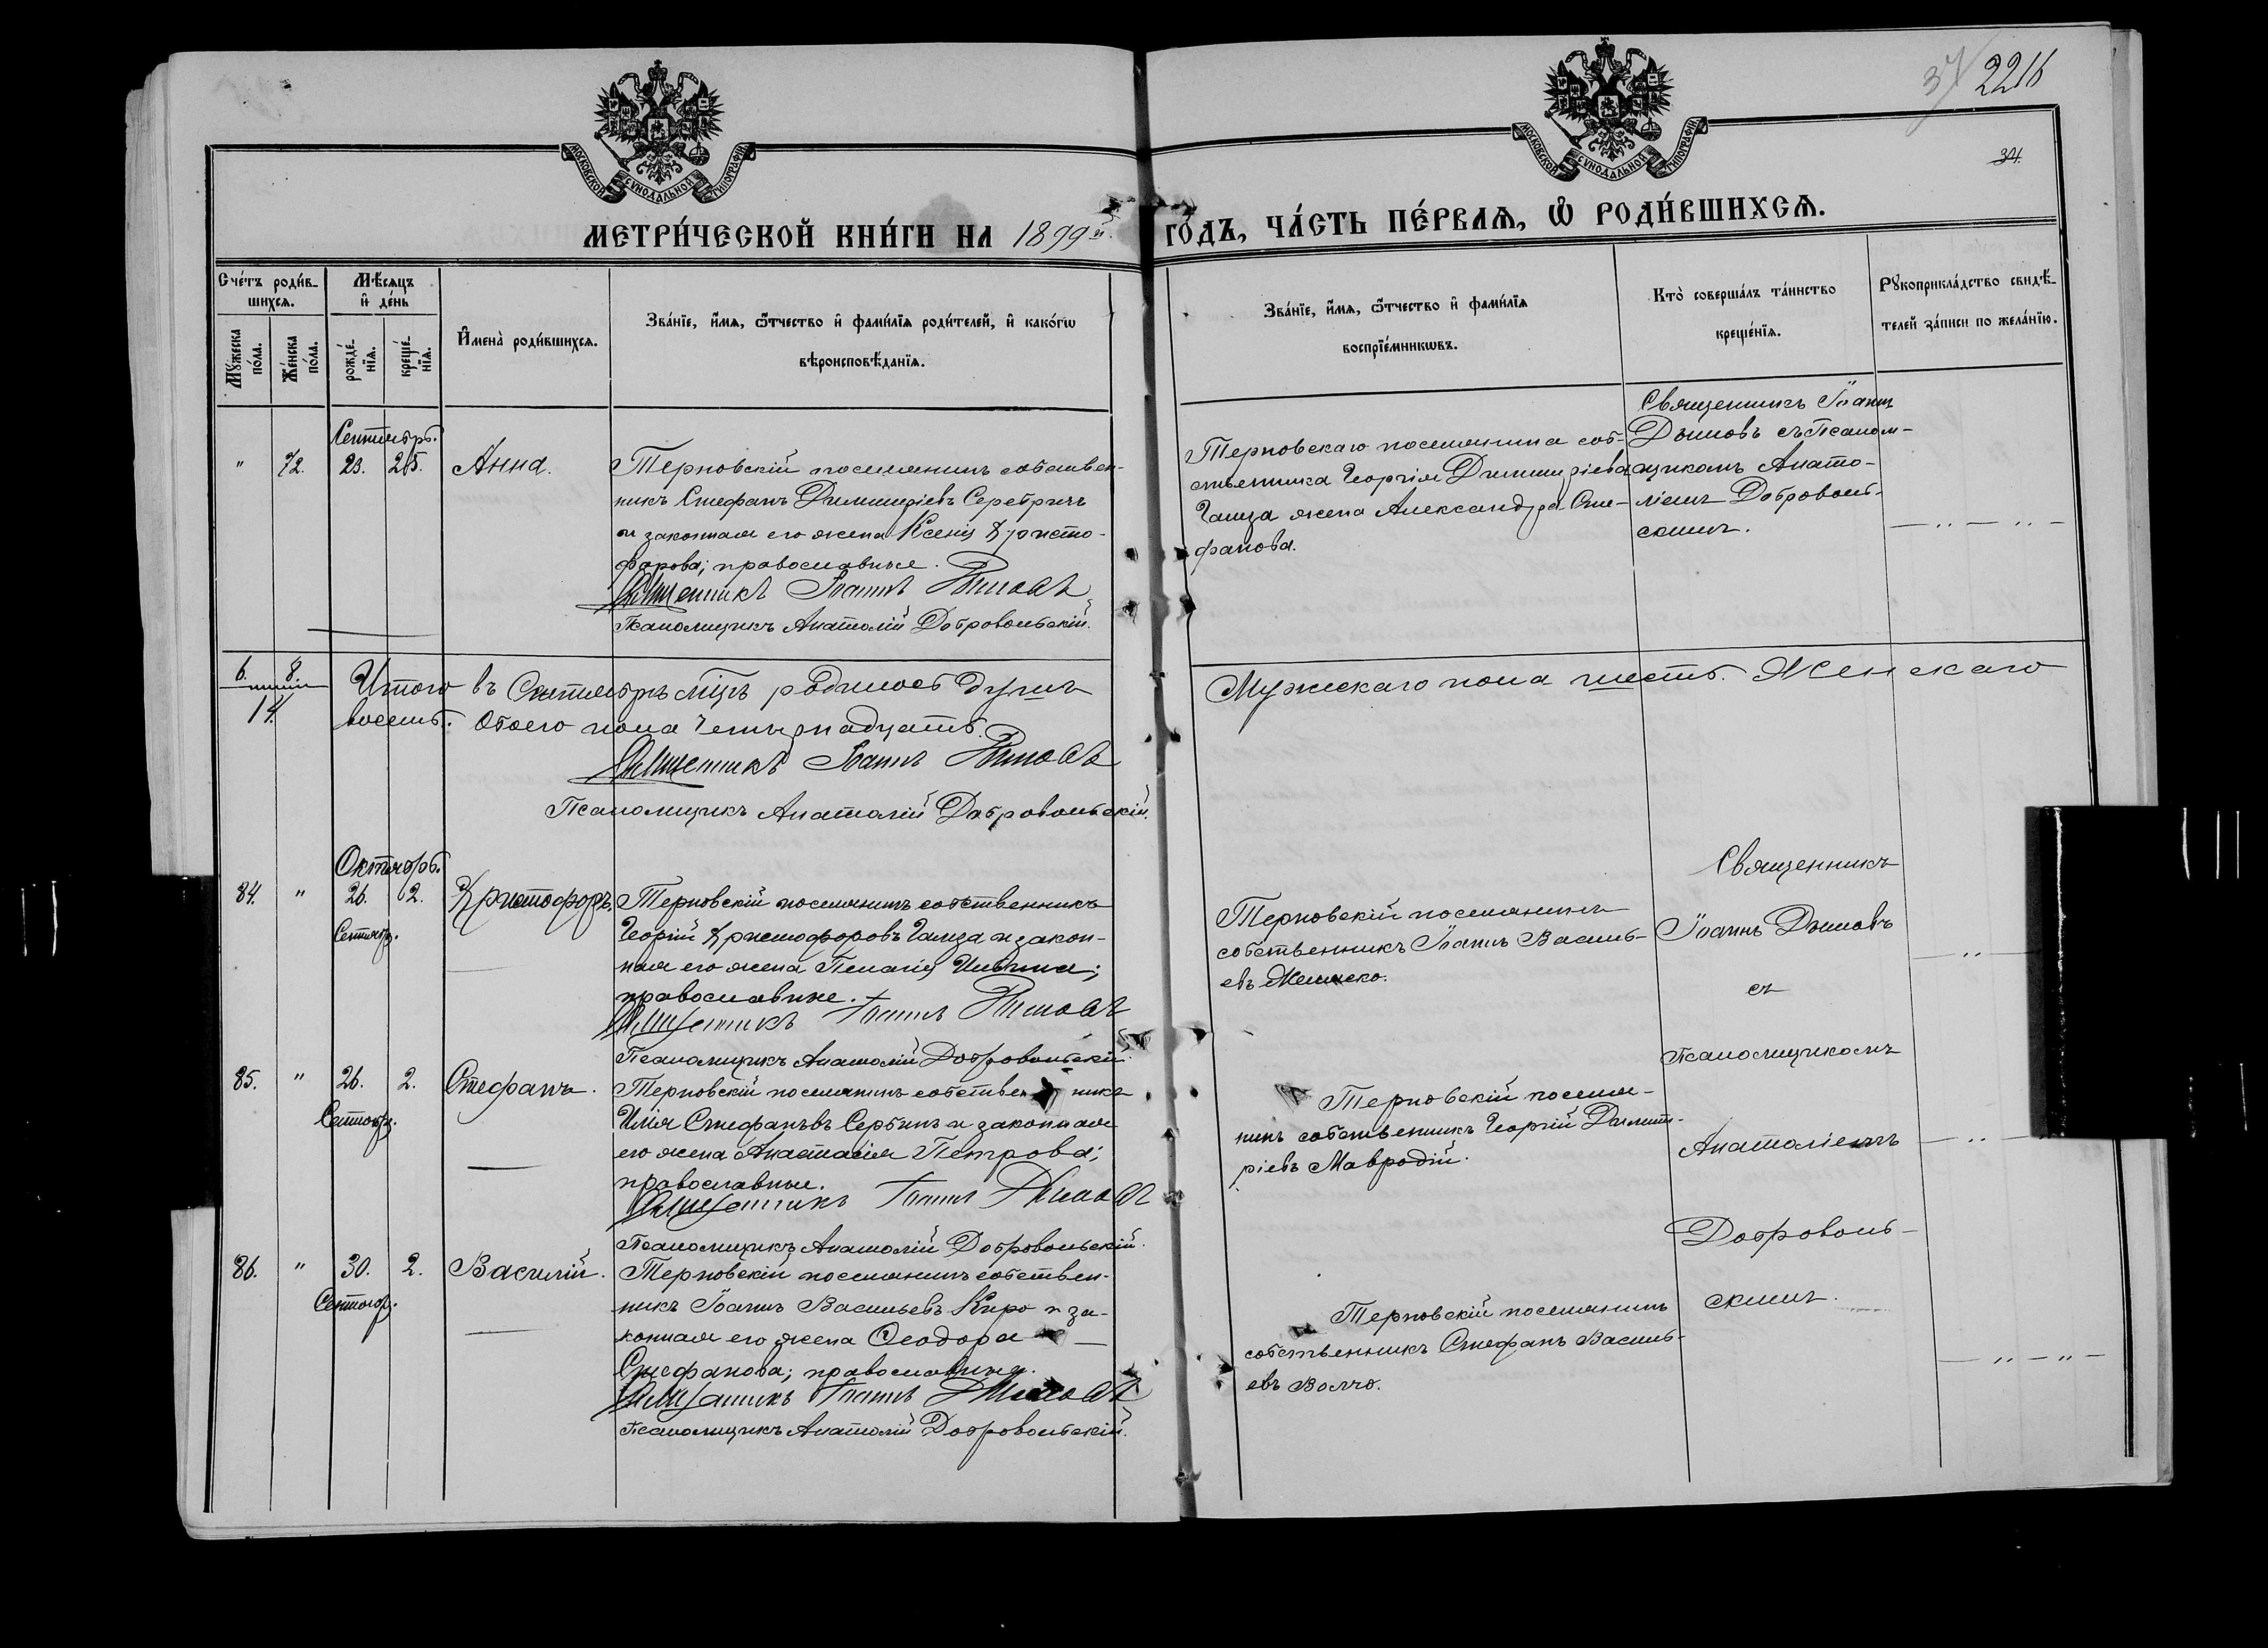 37 2216
34.
МОСКОВСКОЙ СУНОДАЛЬНОЙ ТИПОГРАФІИ
МОСКОВСКОЙ СУНОДАЛЬНОЙ ТИПОГРАФІИ
МЕТРИ́ЧЕСКОЙ КНИ́ГИ НА 1899й. ГО́ДЪ, ЧА́СТЬ ПЕ́РВАѦ, Ѽ РОДИ́ВШИХСѦ.
Сче́тъ роди́в-
шихсѧ.
Мꙋ́жеска
по́ла.
Же́нска
по́ла.
Мѣ́сѧцъ
и҆ де́нь
рожде́-
нїѧ.
креще́-
нїѧ.
И҆мена̀ роди́вшихсѧ.
Зва́нїе, и҆́мѧ, ѻ҆́тчество и҆ фамѝлїѧ роди́телей, и҆ како́гѡ
вѣроисповѣ́данїѧ.
Зва́нїе, и҆́мѧ, ѻ҆́тчество и҆ фамѝлїѧ
воспрїе́мникѡвъ.
Кто̀ соверша́лъ та́инство
креще́нїѧ.
Рꙋкоприкла́дство свидѣ́-
телей за́писи по жела́нїю.
Сентябрь.
" 72. 23. 25. Анна.
Терновскій поселянинъ собствен-
никъ Стефанъ Димитріевъ Сербинъ
и законная его жена Ксенія Христо-
форова; православные.
Священникъ Іоаннъ Дымовъ
Псаломщикъ Анатолій Добровольскій.
Терновскаго поселянина соб-
ственника Георгія Димитріева
Гамза жена Александра Сте-
фанова.
Священникъ Іоаннъ
Дымовъ съ Псалом-
щикомъ Анато-
ліемъ Доброволь-
скимъ.
6. 8.
14.
Итого въ Сентябрѣ мцѣ родилось душъ Мужескаго пола шесть. Женскаго
восемь. Обоего пола Четырнадцать.
Священникъ Іоаннъ Дымовъ
Псаломщикъ Анатолій Добровольскій.
Октябрь.
84. " 26. 2. Христофоръ.
Сентябр.
Терновскій поселянинъ собственникъ
Георгій Христофоровъ Гамза и закон-
ная его жена Пелагія Ивана;
православные.
Священникъ Іоаннъ Дымовъ
Псаломщикъ Анатолій Добровольскій.
Терновскій поселянинъ
собственникъ Іоаннъ Василь-
евъ
Священникъ
Іоаннъ Дымовъ
съ
Псаломщикомъ
Анатоліемъ
Доброволь-
скимъ.
85. " 26. 2. Стефанъ.
Сентябр.
Терновскій поселянинъ собственникъ
Илія Стефановъ Сербинъ и законная
его жена Анастасія Петрова;
православные.
Священникъ Іоаннъ Дымовъ
Псаломщикъ Анатолій Добровольскій.
Терновскій поселя-
нинъ собственникъ Георгій Димит-
ріевъ Мавродій.
86. " 30. 2. Василій.
Сентябр.
Терновскій поселянинъ собствен-
никъ Іоаннъ Васильевъ Киро и за-
конная его жена Ѳеодора
Стефанова; православные.
Священникъ Іоаннъ Дымовъ
Псаломщикъ Анатолій Добровольскій.
Терновскій поселянинъ
собственникъ Стефанъ Василь-
евъ Волчо.